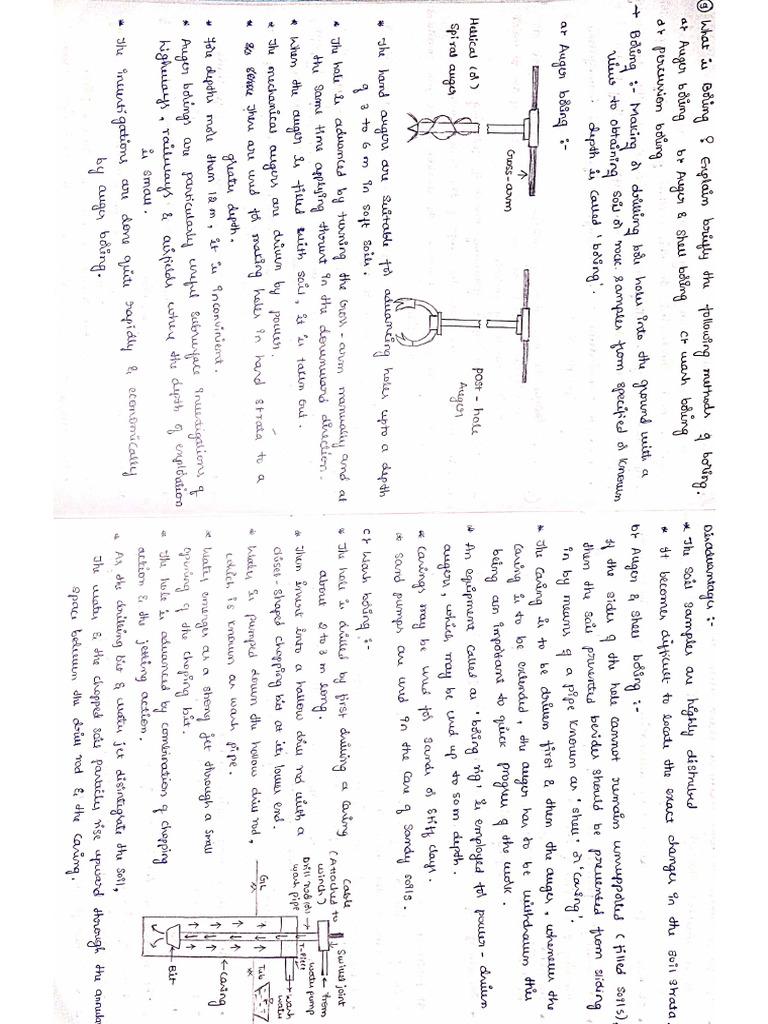 9) What is Boring ? Explain briefly the following methods of boring.
a) Auger boring b) Auger & shell boring c) wash boring
d) percussion boring.
→ Boring :- Making or drilling bore holes into the ground with a
view to obtaining soil or rock samples from specified or known
depth is called 'boring'.
a) Auger boring :-
Cross-arm
Hellical (or)
Spiral auger
post - hole
Auger
* The hand augers are suitable for advancing holes upto a depth
of 3 to 6 m in soft soils.
* The hole is advanced by turning the cross-arm manually and at
the same time applying thrust in the downward direction.
* When the auger is filled with soil, it is taken out.
* The mechanical augers are driven by power.
* There are used for making holes in hard strata to a
greater depth.
* For depths more than 12 m, it is inconvinient.
* Auger borings are particularly useful subsurface investigations of
highways, railways & airfields where the depth of exploration
is small.
* The investigations are done quite rapidly & economically
by auger boring.
Disadvantages :-
* The soil samples are highly distrubed
* It becomes difficult to locate the exact changes in the soil strata.
b) Auger & shell boring :-
If the sides of the hole cannot remain unsuppolled (filled soils)
then the soil prevented besides should be prevented from sliding
in by means of a pipe known as 'shell' or 'casing'.
* The casing is to be driven first & then the auger, whenever the
casing is to be extended, the auger has to be withdrawn this
being an impotant to quick progress of the work.
* An equipment called as 'boring rig' is employed for power-driven
auger, which may be used up to 50 m depth.
* casings may be used for sands or stiff clays.
* sand pumps are used in the case of sandy soils.
c) Wash boring :-
* The hole is drilled by first driving a casing
about 2 to 3 m long.
* Then insert into a hallow drill rod with a
chisel-shaped chopping bit at its lower end.
* Water is pumped down the hollow drill rod,
which is known as wash pipe.
* Water emerges as a strong jet through a small
opening of the choping bit.
* The hole is advanced by combination of chopping
action & the jetting action.
* As the drilling bit & water jet disintigrate the soil,
the water & the chopped soil particles rise upward through the annular
space between the drill rod & the casing.
Cable
(Attached to
winch)
Drill rod (or)
wash pipe
Swivel joint
from
water pump
T-piece
wash
water
GL
Tub
Casing
Bit